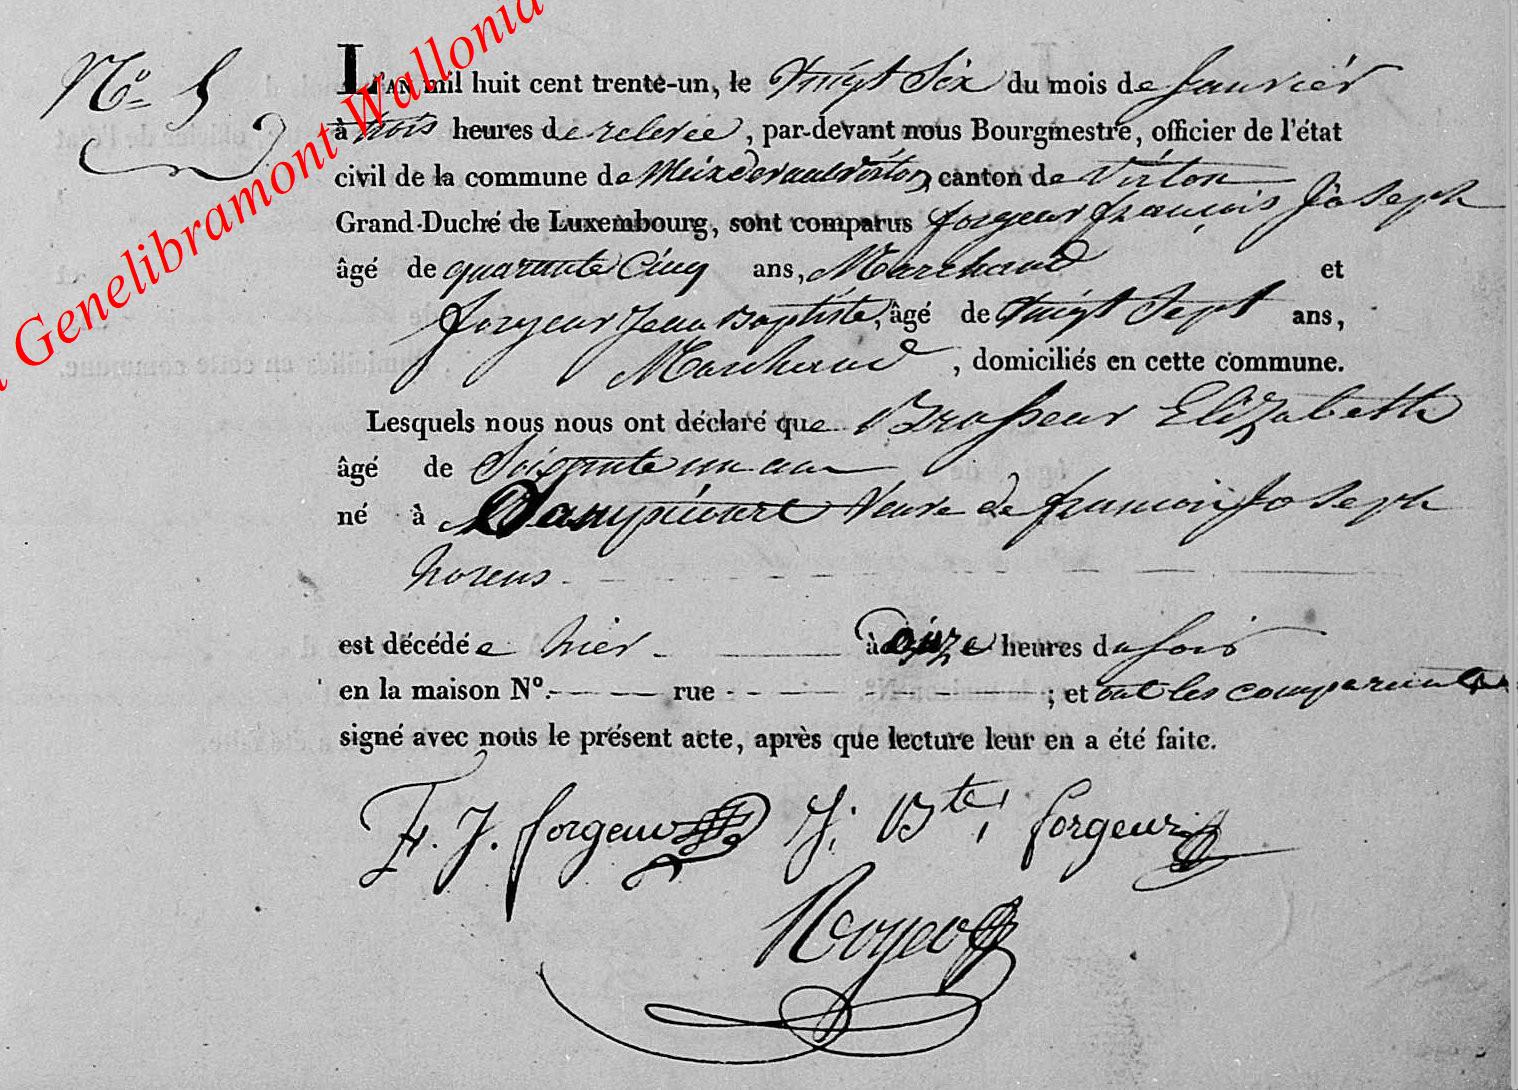 Genelibramont Wallonia
N.º 5
L'AN mil huit cent trente-un, le Vingt Six du mois de Janvier
à trois heures de relevée, par-devant nous Bourgmestre, officier de l'état
civil de la commune de Meix devant Virton, canton de Virton
Grand-Duché de Luxembourg, sont comparus forgeur françois Joseph
âgé de quarante Cinq ans, Marchand et
forgeur Jean Baptiste, âgé de Vingt Sept ans,
Marchand, domiciliés en cette commune.
Lesquels nous nous ont déclaré que Brasseur Elizabeth
âgé de Soixante un an
né à Dampicourt Veuve de francois Joseph
est décédée hier à onze heures du soir
en la maison Nº. rue ; et ont les comparants
signé avec nous le présent acte, après que lecture leur en a été faite.
F. J. forgeur J. Bte forgeur